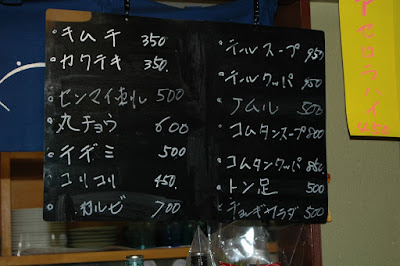 キムチ 350
カクテキ 350.
センマイ刺し 500
丸チョウ 600
テデミ 500
コリコリ 450.
カルビ 700
テールスープ 950
テールクッパ 950
ナムル 500
コムタンスープ 800
コムタンクッパ 850
トン足 500
チョレギサラダ 500